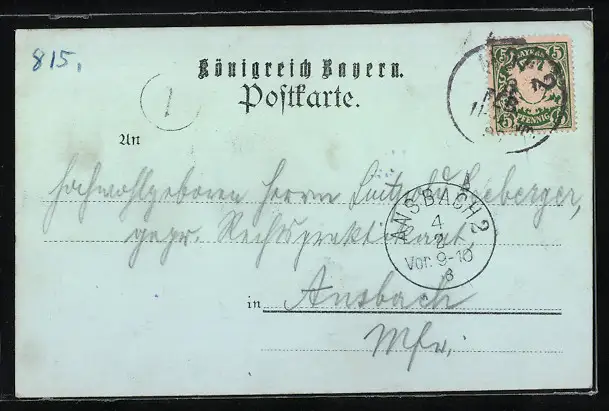 815.
Königreich Bayern.
Postkarte.
1
BAYERN
5 5
PFENNIG
An
Hochwohlgeboren Herrn
gepr. Rechtspraktikant
ANSBACH 2
4
2
Vor. 9-10
in Ansbach
Mfr.